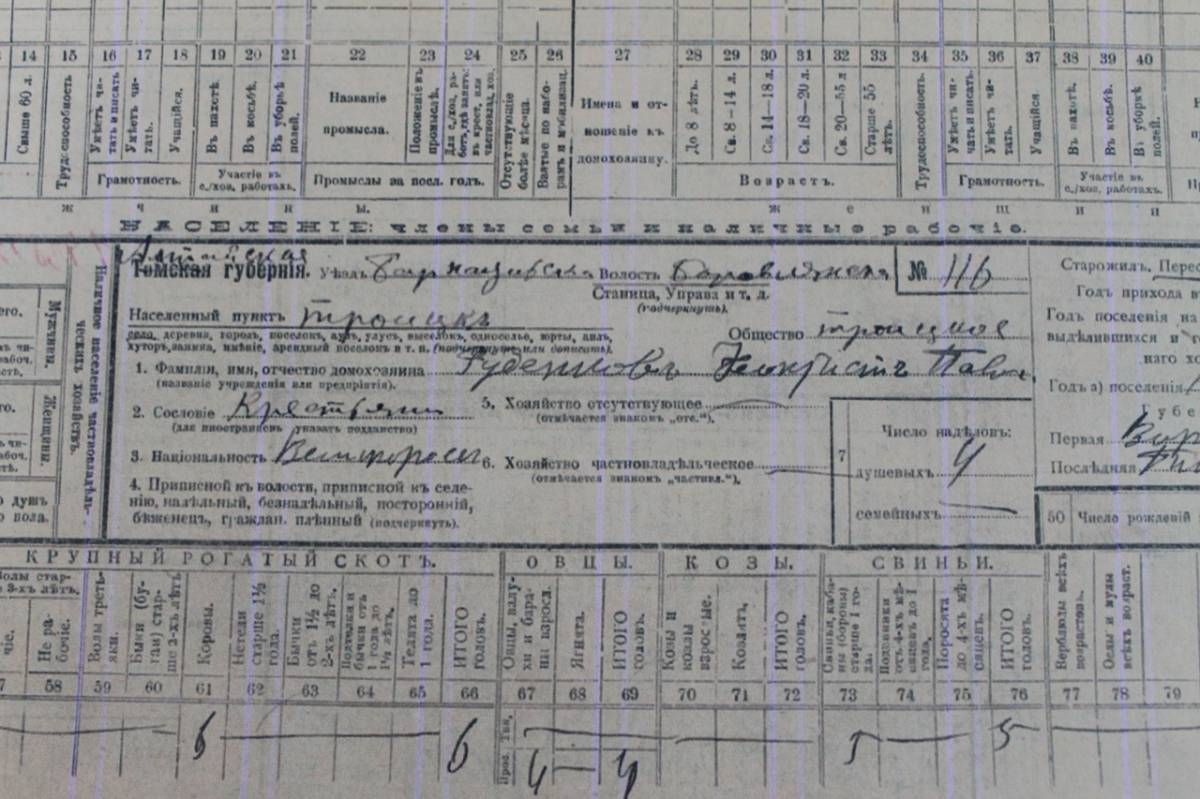 14 15 16 17 18 19 20 21 22 23 24 25 26 27 28 29 30 31 32 33 34 35 36 37 38 39 40
Свыше 60 л.
Трудоспособность
Умѣетъ чи-
тать и писать
Умѣетъ чи-
тать.
Учащійся.
Въ пахотѣ.
Въ косьбѣ.
Въ уборкѣ
полей.
Названіе
промысла.
Положеніе въ
промыслѣ.
Отсутствующіе
болѣе мѣсяца.
Имена и от-
ношеніе къ
домохозяину.
До 8 лѣтъ.
Св. 8—14 л.
Св. 14—18 л.
Св. 18—20 л.
Св. 20—55 л
Старше 55
лѣтъ.
Трудоспособность.
Умѣетъ чи-
тать и писать.
Умѣетъ чи-
тать.
Учащійся.
Въ пахотѣ.
Въ косьбѣ.
Въ уборкѣ
полей.
Грамотность.
Участіе въ
с./хоз. работахъ.
Промыслы за посл. годъ.
Возрастъ.
Грамотность.
Участіе въ
с./хоз. работахъ.
ж ч и н ы. ж е н щ и н
НАСЕЛЕНІЕ: члены семьи и наличіе рабочіе.
Алтайская
Томская губернія. Уѣздъ Волость № 116
Станица, Управа и т. д.
(Подчеркнуть).
Населенный пунктъ Троицкъ
село, деревня, городъ, поселокъ, аулъ, улусъ, выселокъ, односелье, юрты, аилъ,
хуторъ, заимка, имѣніе, арендный поселокъ и т. п. (подчеркнуть или дописать).
Общество троицкое
1. Фамилія, имя, отчество домохозяина Рубенковъ Неофистъ Павл.
(названіе учрежденія или предпріятія).
2. Сословіе Крестьянин
(для иностранцевъ указать подданство)
5. Хозяйство отсутствующее
(отмѣчается знакомъ „отс.“).
3. Національность Великоросс
6. Хозяйство частновладѣльческое
(отмѣчается знакомъ „частвл.“).
4. Приписной къ волости, приписной къ селе-
нію, надѣльный, безнадѣльный, посторонній,
бѣженецъ, граждан. плѣнный (подчеркнуть).
7
Число надѣловъ:
душевыхъ 4
семейныхъ
Старожилъ. Перес
Годъ прихода в
Годъ поселенія на
выдѣлившихся и
наго хо
Годъ а) поселенія
Губе
Первая
Послѣдняя
50 Число рожденій
Мужчины.
Женщины.
Наличное населеніе частновладѣль-
ческихъ хозяйствъ.
КРУПНЫЙ РОГАТЫЙ СКОТЪ. ОВЦЫ. КОЗЫ. СВИНЬИ.
Волы стар-
3-хъ лѣтъ.
Не ра-
бочіе.
Волы треть-
яки.
Быки (бу-
гаи) стар-
ше 2-хъ лѣтъ
Коровы.
Нетели
старше 1½
года.
Бычки
отъ 1½ до
2-хъ лѣтъ.
Подтелки и
бычки отъ
1 года до
1½ лѣтъ.
Телята до
1 года.
ИТОГО
головъ.
Овцы, валу-
хи и бара-
ны взросл.
Ягнята.
ИТОГО
головъ.
Козы и
козлы
взрослые.
Козлята.
ИТОГО
головъ.
Свиньи, каба-
ны (боровы)
старше 1 го-
да.
Подсвинки
отъ 4-хъ мѣ-
сяцевъ до 1
года.
Поросята
до 4-хъ мѣ-
сяцевъ.
ИТОГО
головъ.
Верблюды всѣхъ
возрастовъ.
Ослы и мулы
всѣхъ возраст.
58 59 60 61 62 63 64 65 66 67 68 69 70 71 72 73 74 75 76 77 78 79
6 6 5 5
Прос. 4 4